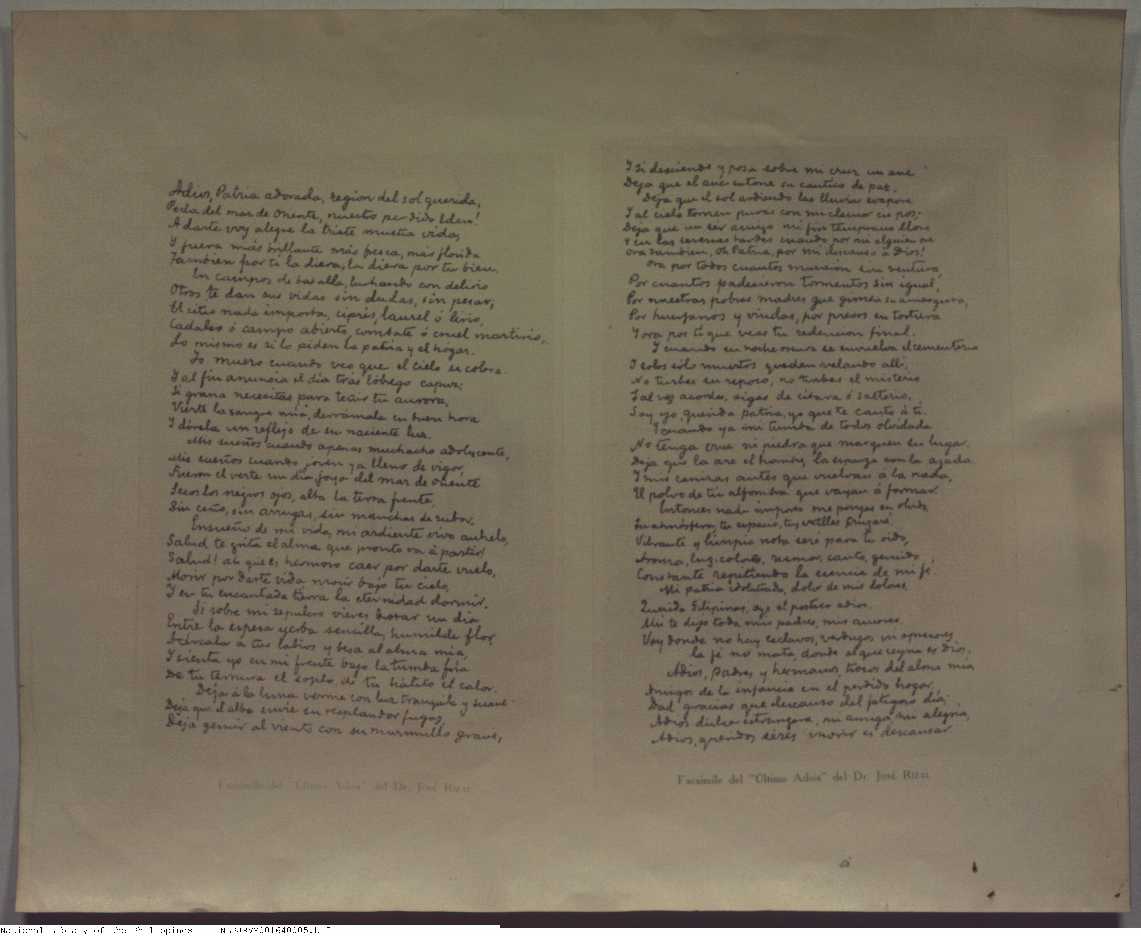 Adios, Patria adorada, region del sol querida,
Perla del mar de Oriente, nuestro perdido Eden!
A darte voy alegre la triste mustia vida,
Y fuera más brillante más fresca, más florida
Tambien por ti la diera, la diera por tu bien.
En campos de batalla, luchando con delirio
Otros te dan sus vidas sin dudas, sin pesar;
El sitio nada importa, ciprés, laurel ó lirio,
Cadalso ó campo abierto, combate ó cruel martirio,
Lo mismo es si lo piden la patria y el hogar.
Yo muero cuando veo que el cielo se colora
Y al fin anuncia el día tras lóbrego capuz;
Si grana necesitas para teñir tu aurora,
Vierte la sangre mía, derrámala en buen hora
Y dórela un reflejo de su naciente luz.
Mis sueños cuando apenas muchacho adolescente,
Mis sueños cuando joven ya lleno de vigor,
Fueron el verte un día, joya del mar de oriente
Secos los negros ojos, alta la tersa frente,
Sin ceño, sin arrugas, sin manchas de rubor.
Ensueño de mi vida, mi ardiente vivo anhelo,
Salud te grita el alma que pronto va á partir!
Salud! ah que es hermoso caer por darte vuelo,
Morir por darte vida, morir bajo tu cielo,
Y en tu encantada tierra la eternidad dormir.
Si sobre mi sepulcro vieres brotar un dia
Entre la espesa yerba sencilla, humilde flor,
Acércala á tus labios y besa al alma mía,
Y sienta yo en mi frente bajo la tumba fría
De tu ternura el soplo, de tu hálito el calor.
Deja á la luna verme con luz tranquila y suave
Deja que el alba envíe su resplandor fugaz,
Deja gemir al viento con su murmullo grave,
Y si desciende y posa sobre mi cruz un ave
Deja que el ave entone su cantico de paz.
Deja que el sol ardiendo las lluvias evapore
Y al cielo tornen puras con mi clamor en pos,
Deja que un ser amigo mi fin temprano llore
Y en las serenas tardes cuando por mi alguien ore
Ora tambien, Oh Patria, por mi descanso á Dios!
Ora por todos cuantos murieron sin ventura,
Por cuantos padecieron tormentos sin igual,
Por nuestras pobres madres que gimen su amargura,
Por huerfanos y viudas, por presos en tortura
Y ora por ti que veas tu redencion final.
Y cuando en noche oscura se envuelva el cementerio
Y solos sólo muertos queden velando allí,
No turbes su reposo, no turbes el misterio
Tal vez acordes oigas de citara ó salterio,
Soy yo, querida Patria, yo que te canto á ti.
Y cuando ya mi tumba de todos olvidada
No tenga cruz ni piedra que marquen su lugar,
Deja que la are el hombre, la esparza con la azada
Y mis cenizas antes que vuelvan á la nada,
El polvo de tu alfombra que vayan á formar.
Entonces nada importa me pongas en olvido,
Tu atmósfera, tu espacio, tus valles cruzaré,
Vibrante y limpia nota seré para tu oido,
Aroma, luz, colores, rumor, canto, gemido
Constante repitiendo la esencia de mi fé.
Mi patria idolatrada, dolor de mis dolores,
Querida Filipinas, oye el postrer adios.
Ahi te dejo todo mis padres, mis amores.
Voy donde no hay esclavos, verdugos ni opresores
la fé no mata, donde el que reyna es Dios.
Adios, padres y hermanos, trozos del alma mía
Amigos de la infancia en el perdido hogar,
Dad gracias que descanso del fatigoso día;
Adios dulce estrangera, mi amiga, mi alegria,
Adios, queridos séres morir es descansar.
Facsimile del "Ultimo Adios" del Dr. José Rizal
Facsimile del "Ultimo Adios" del Dr. José Rizal
National Library of the Philippines